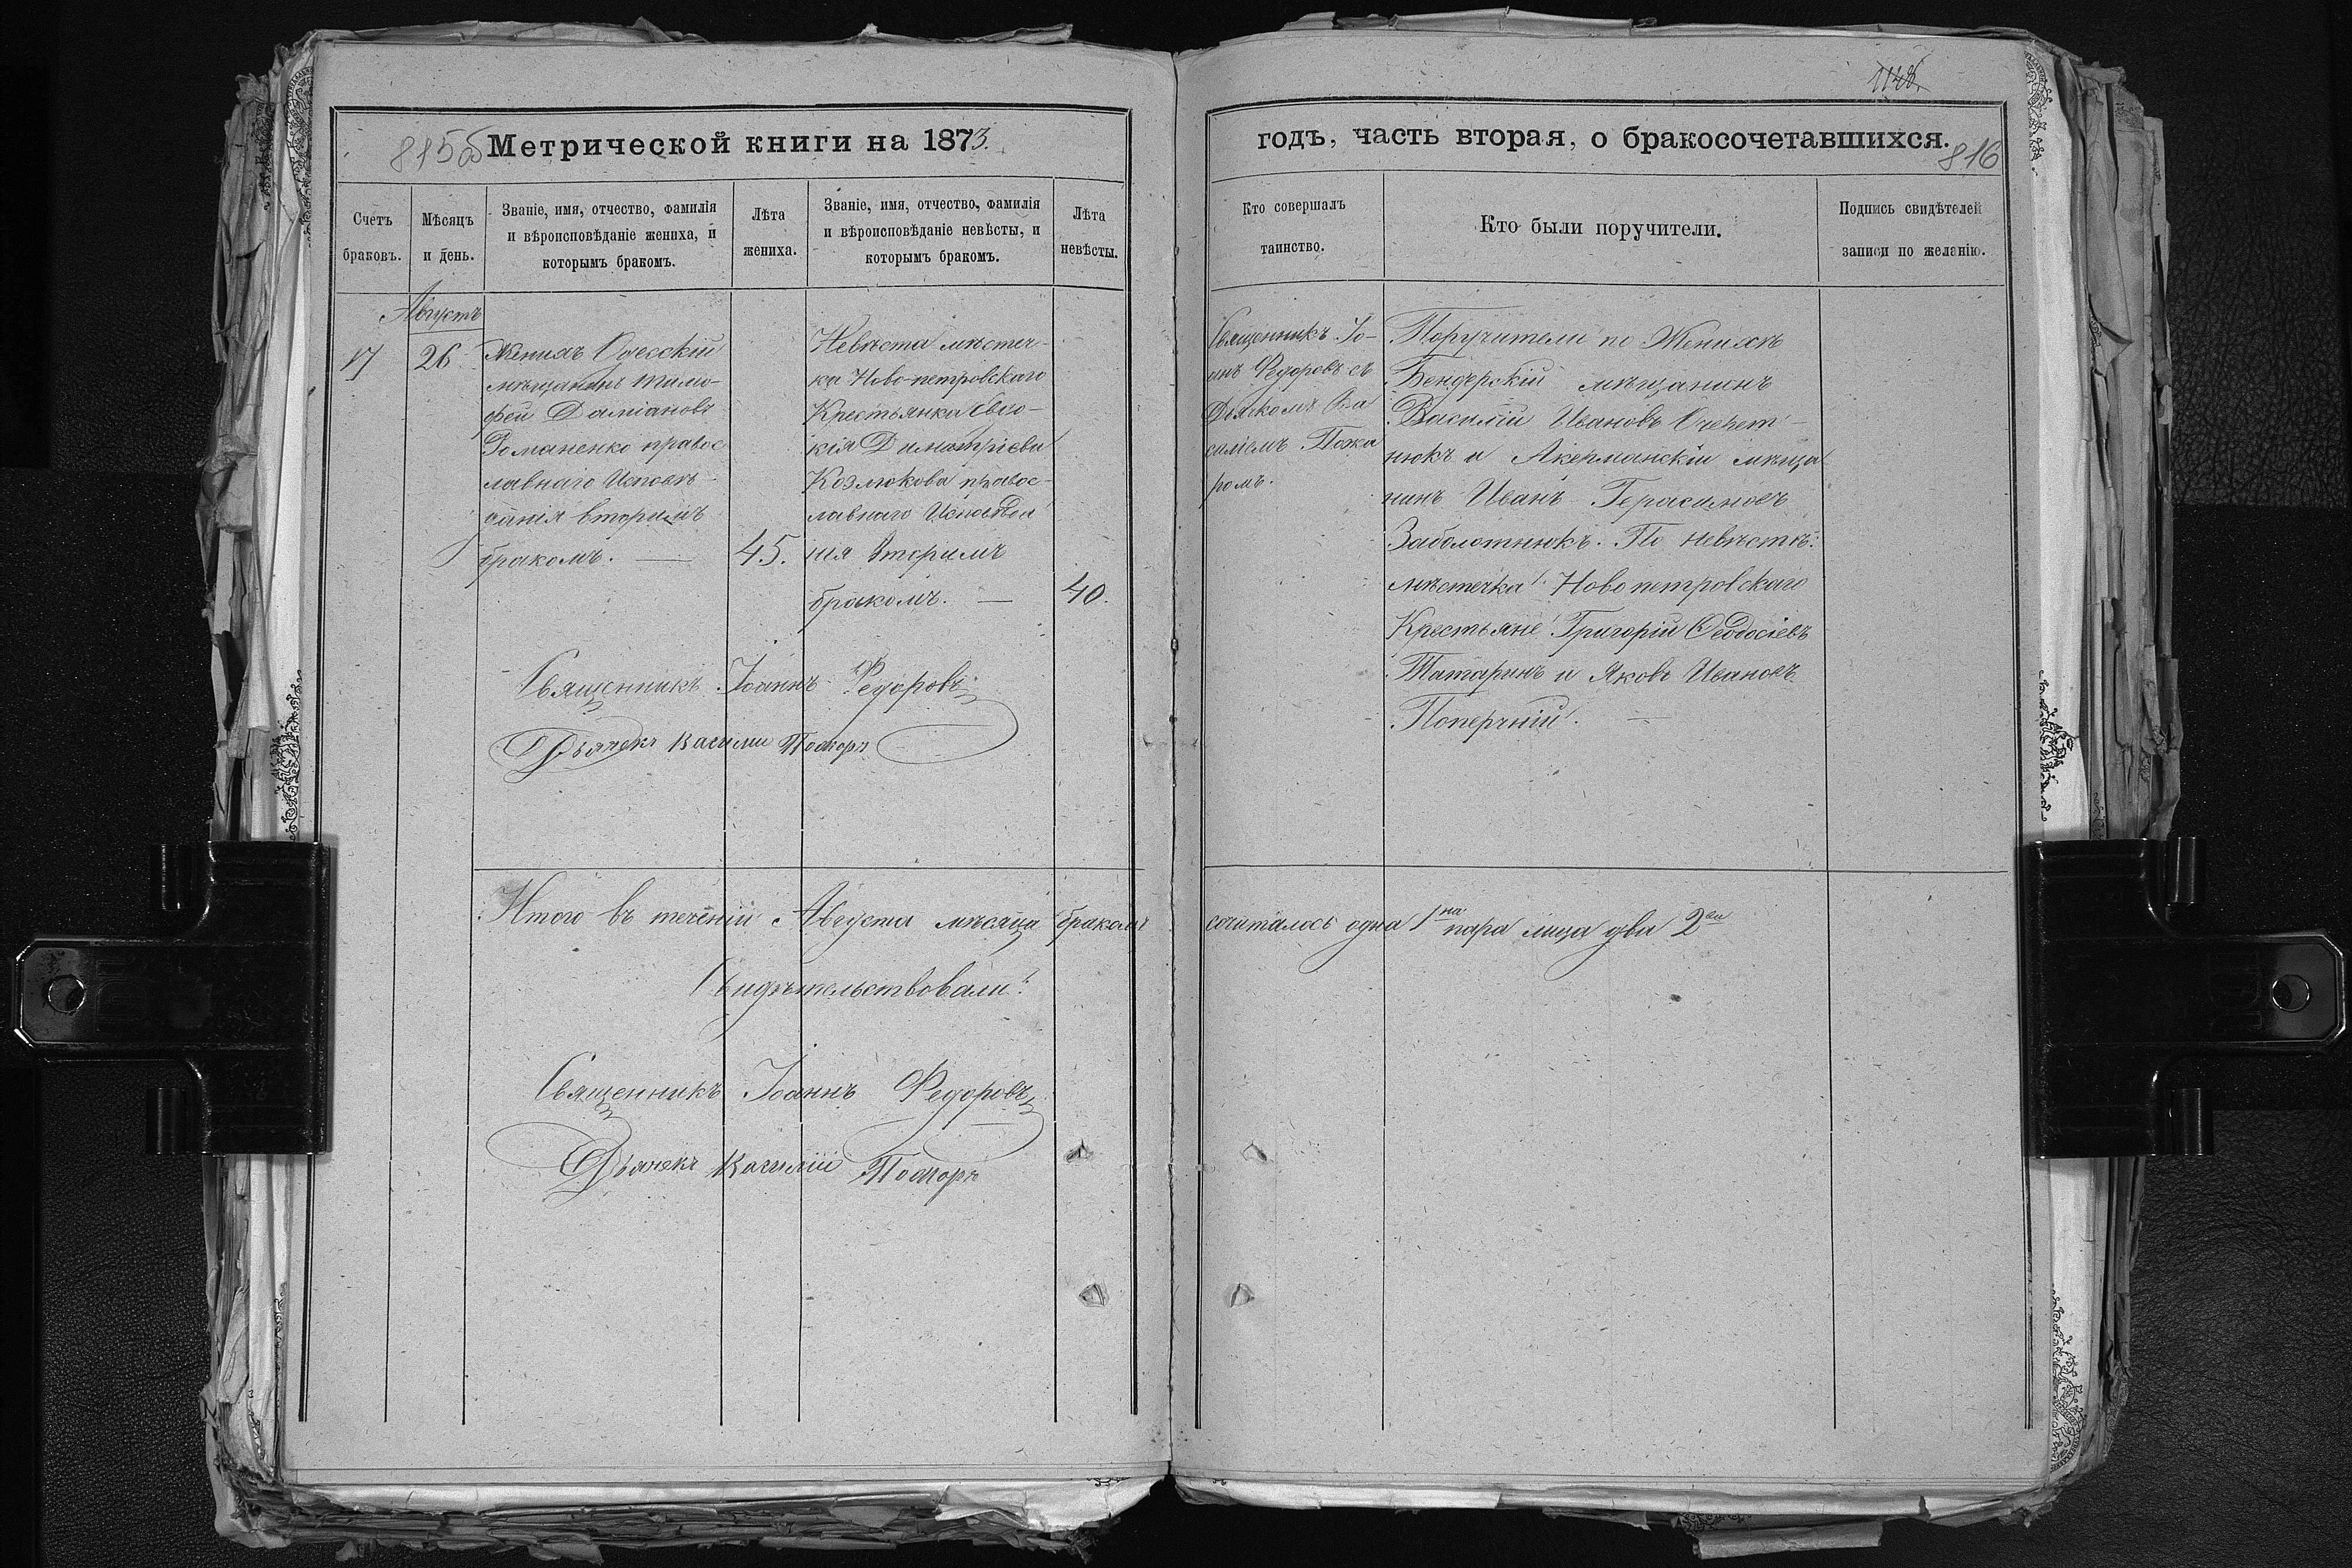 1148
815об
Метрической книги на 1873.
годъ, часть вторая, о бракосочетавшихся.
816
Счетъ браковъ.
Мѣсяцъ и день.
Званіе, имя, отчество, фамилія и вѣроисповѣданіе жениха, и которымъ бракомъ.
Лѣта жениха.
Званіе, имя, отчество, фамилія и вѣроисповѣданіе невѣсты, и которымъ бракомъ.
Лѣта невѣсты.
Кто совершалъ таинство.
Кто были поручители.
Подпись свидѣтелей записи по желанію.
Августъ
17
26
Женихъ Одесскій
мѣщанинъ Тимо-
фей Даміановъ
Романенко правос
лавнаго Исповѣ-
данія вторымъ
бракомъ. —
45.
Невѣста мѣстеч-
ка Ново-петровскаго
Крестьянка Евдо-
кія Димитріева
Козлюкова правос-
лавнаго Исповѣда
нія вторымъ
бракомъ. —
40.
Священникъ Іо-
анъ Федоровъ съ
Дьячкомъ Ва
силіемъ Пожа
ромъ.
Поручители по Женихѣ
Бендерскій мѣщанинъ
Василій Ивановъ Очерет-
нюкъ и Акерманскій мѣща
нинъ Иванъ Герасимовъ
Заболотнюкъ. По невѣстѣ:
мѣстечка Новопетровскаго
Крестьяне Григорій Феодосіевъ
Татаринъ и Яковъ Ивановъ
Поперчній. —
Священникъ Іоаннъ Федоровъ
Дьячекъ Василий Пожаръ
Итого въ теченіи Августа мѣсяца бракомъ
сочиталось одна 1на пара лица два 2ва
Свидѣтельствовали:
Священникъ Іоаннъ Федоровъ
Дьячекъ Василій Пожаръ